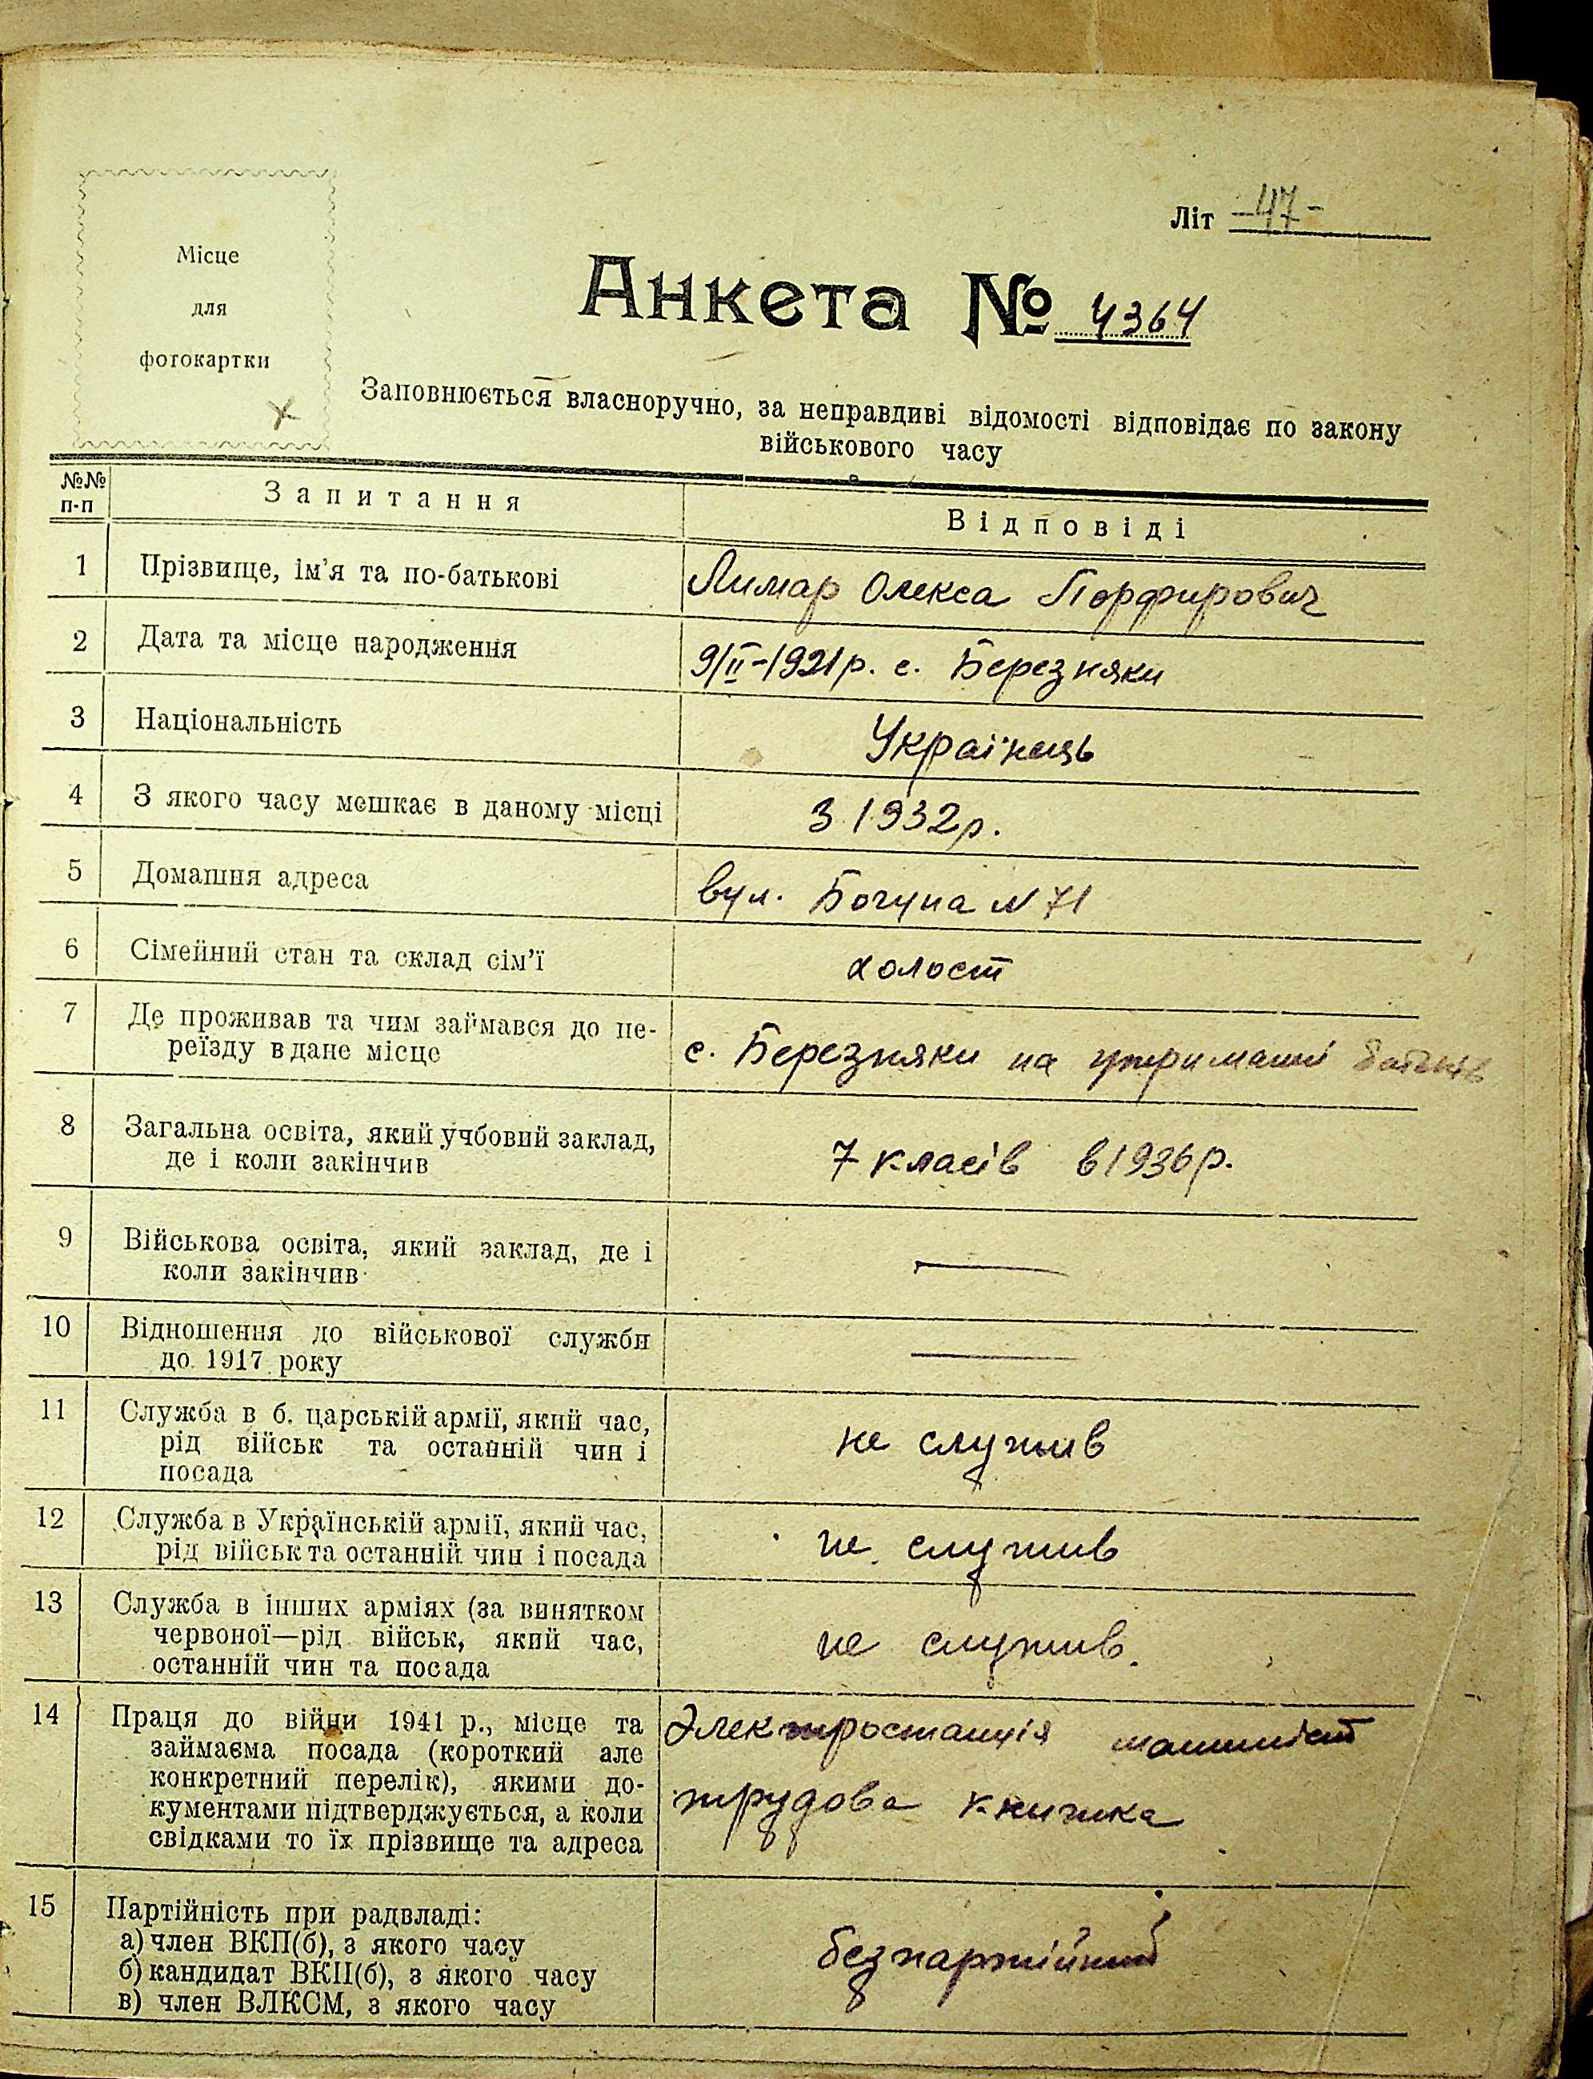 Літ -47-
Місце
для
фотокартки
Анкета № 4364
Заповнюється власноручно, за неправдиві відомості відповідає по закону
військового часу
№№ п-п Запитання Відповіді
1 Прізвище, ім'я та по-батькові Лимар Олекса Порфирович
2 Дата та місце народження 9/II-1921р. с. Березняки
3 Національність Українець
4 З якого часу мешкає в даному місці З 1932р.
5 Домашня адреса вул. Богуна N 71
6 Сімейний стан та склад сім'ї холост
7 Де проживав та чим займався до пе-
реїзду в дане місце с. Березняки на утриманні батьків
8 Загальна освіта, який учбовий заклад,
де і коли закінчив 7 класів в 1936р.
9 Військова освіта, який заклад, де і
коли закінчив —
10 Відношення до військової служби
до 1917 року —
11 Служба в б. царській армії, який час,
рід військ та останній чин і не служив
посада
12 Служба в Українській армії, який час,
рід військ та останній чин і посада не служив
13 Служба в інших арміях (за винятком
червоної—рід військ, який час, не служив.
останній чин та посада
14 Праця до війни 1941 р., місце та Электростанція машиніст
займаєма посада (короткий але
конкретний перелік), якими до-
кументами підтверджується, а коли трудова книжка
свідками то їх прізвище та адреса
15 Партійність при радвладі:
а) член ВКП(б), з якого часу безпартійний
б) кандидат ВКП(б), з якого часу
в) член ВЛКСМ, з якого часу